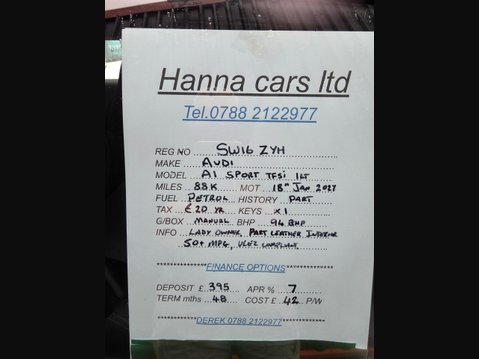 Hanna cars ltd
Tel.0788 2122977
REG NO ......SW16 ZYH
MAKE ....AUDI
MODEL ..A1 SPORT TFSi 1LT
MILES ..88K.... MOT .18th Jan 2027
FUEL ..PETROL HISTORY ...PART
TAX ..£20 YR.. KEYS ..x1
G/BOX ..MANUAL. BHP ..94 BHP
INFO ..LADY OWNER, PART LEATHER INTERIOR
50+ MPG, ULEZ COMPLIANT
*************FINANCE OPTIONS*************
DEPOSIT £.395 APR % .7
TERM mths .48. COST £.42 P/W
***********DEREK 0788 2122977***********